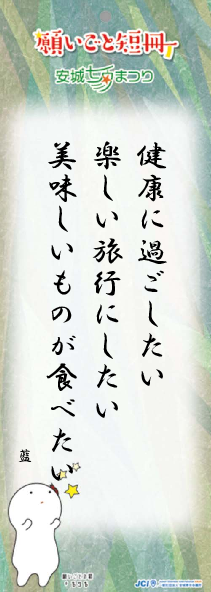 願いごと短冊
安城七夕まつり
健康に過ごしたい
楽しい旅行にしたい
美味しいものが食べたい
藍
JCI